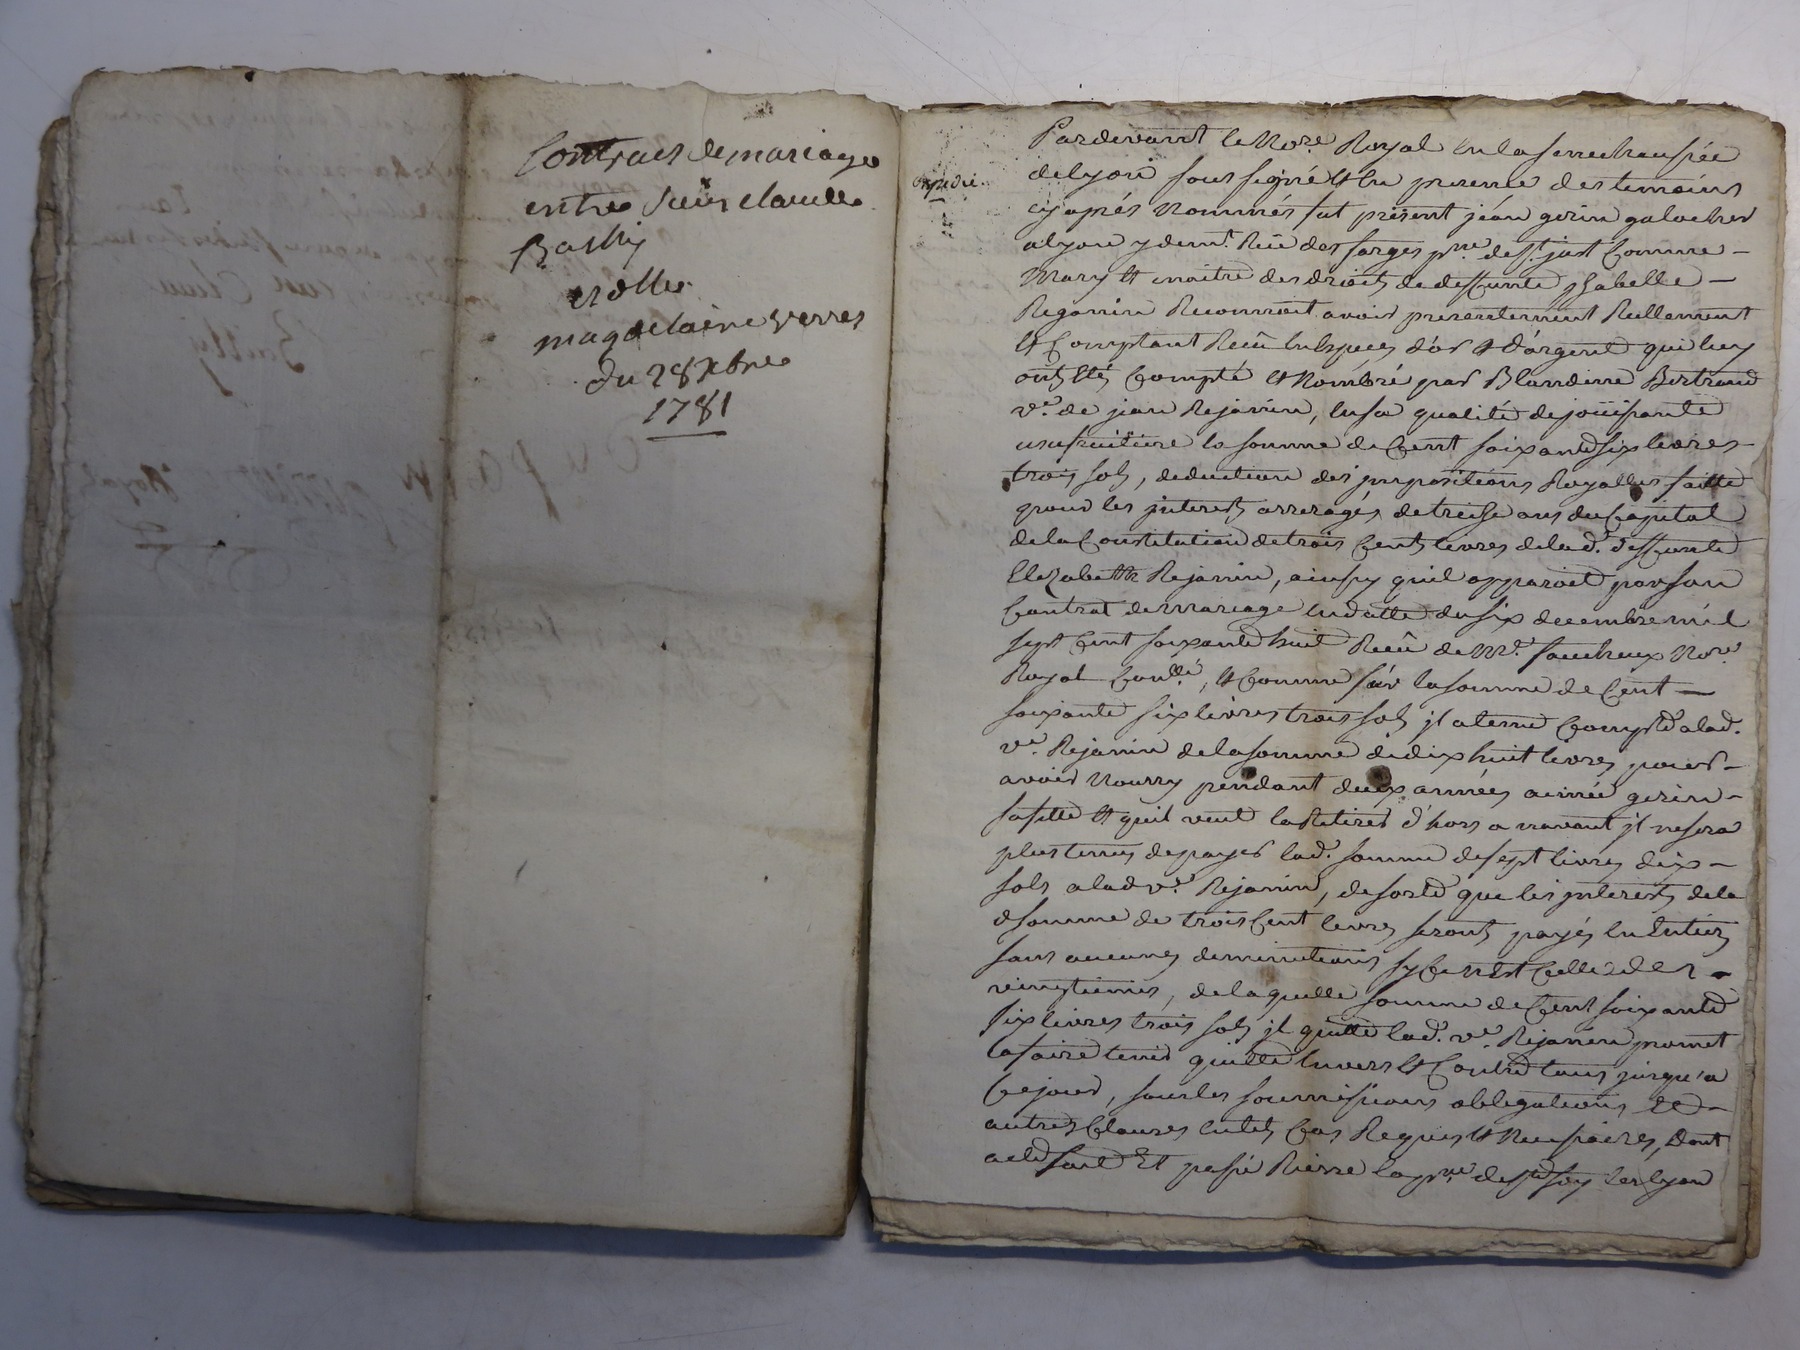 Contract de mariage
entre sieur claude
Bailly
et dlle
magdelaine verres
du 28 xbre
1781
Expedié.
Pardevant le Nore. Royal en la senechaussée
de lyon soussigné et en presence des temoins
cy après nommés fut présent jéan gerin galocher
a lyon y demt. Rüe des farges prse. de st. just Comme
Mary et maitre des droits de deffunte ysabelle
Rejanin Reconnoit avoir presentement Reellement
et Comptant Reçû en especes d'or et d'argent qui luy
ont étés Compté et Nombré par Blandine Bertrand
ve. de jean Rejanin, en sa qualité de joüissante
usufruitiere la somme de Cent soixante six livres
trois sols, deduction des jmpositions Royalles faitte
pour les jnterests arreragés de treise ans du Capital
de la Constitution de trois Cents livres de lad. deffunte
Elezabeth Rejanin, ainsy quil apparoit par son
Contrat de mariage en datte du six decembre mil
sept Cent soixante huit Reçû de Me. Nore.
Royal , et Comme sur la somme de Cent
soixante six livres trois sols jl a tenu Compte a lad.
ve. Rejanin de la somme de dix huit livres pour
avoir Nourry pendant deux années aimée gerin
sa fille et quil veut la Retirer d'hors a navant jl ne sera
plus tenus de payer lad. somme de sept livres dix
sols a lad ve. Rejanin, de sorte que les jnterests de la
d somme de trois Cent livres seront payés en Entiers
sans aucunes deminutions sy Ce n'est Celle des
vingtiemes, de laquelle somme de Cent soixante
six livres trois sols jl quitte lad. ve. Rejanin promet
la faire tenir quitte Envers et Contre tous jusqu'a
Ce jour, sous les soumissions obligations et
autres Clauses en tels Cas Requis et Necessaires, Dont
acte fait Et passé Riere la prse. de ste foy les lyon